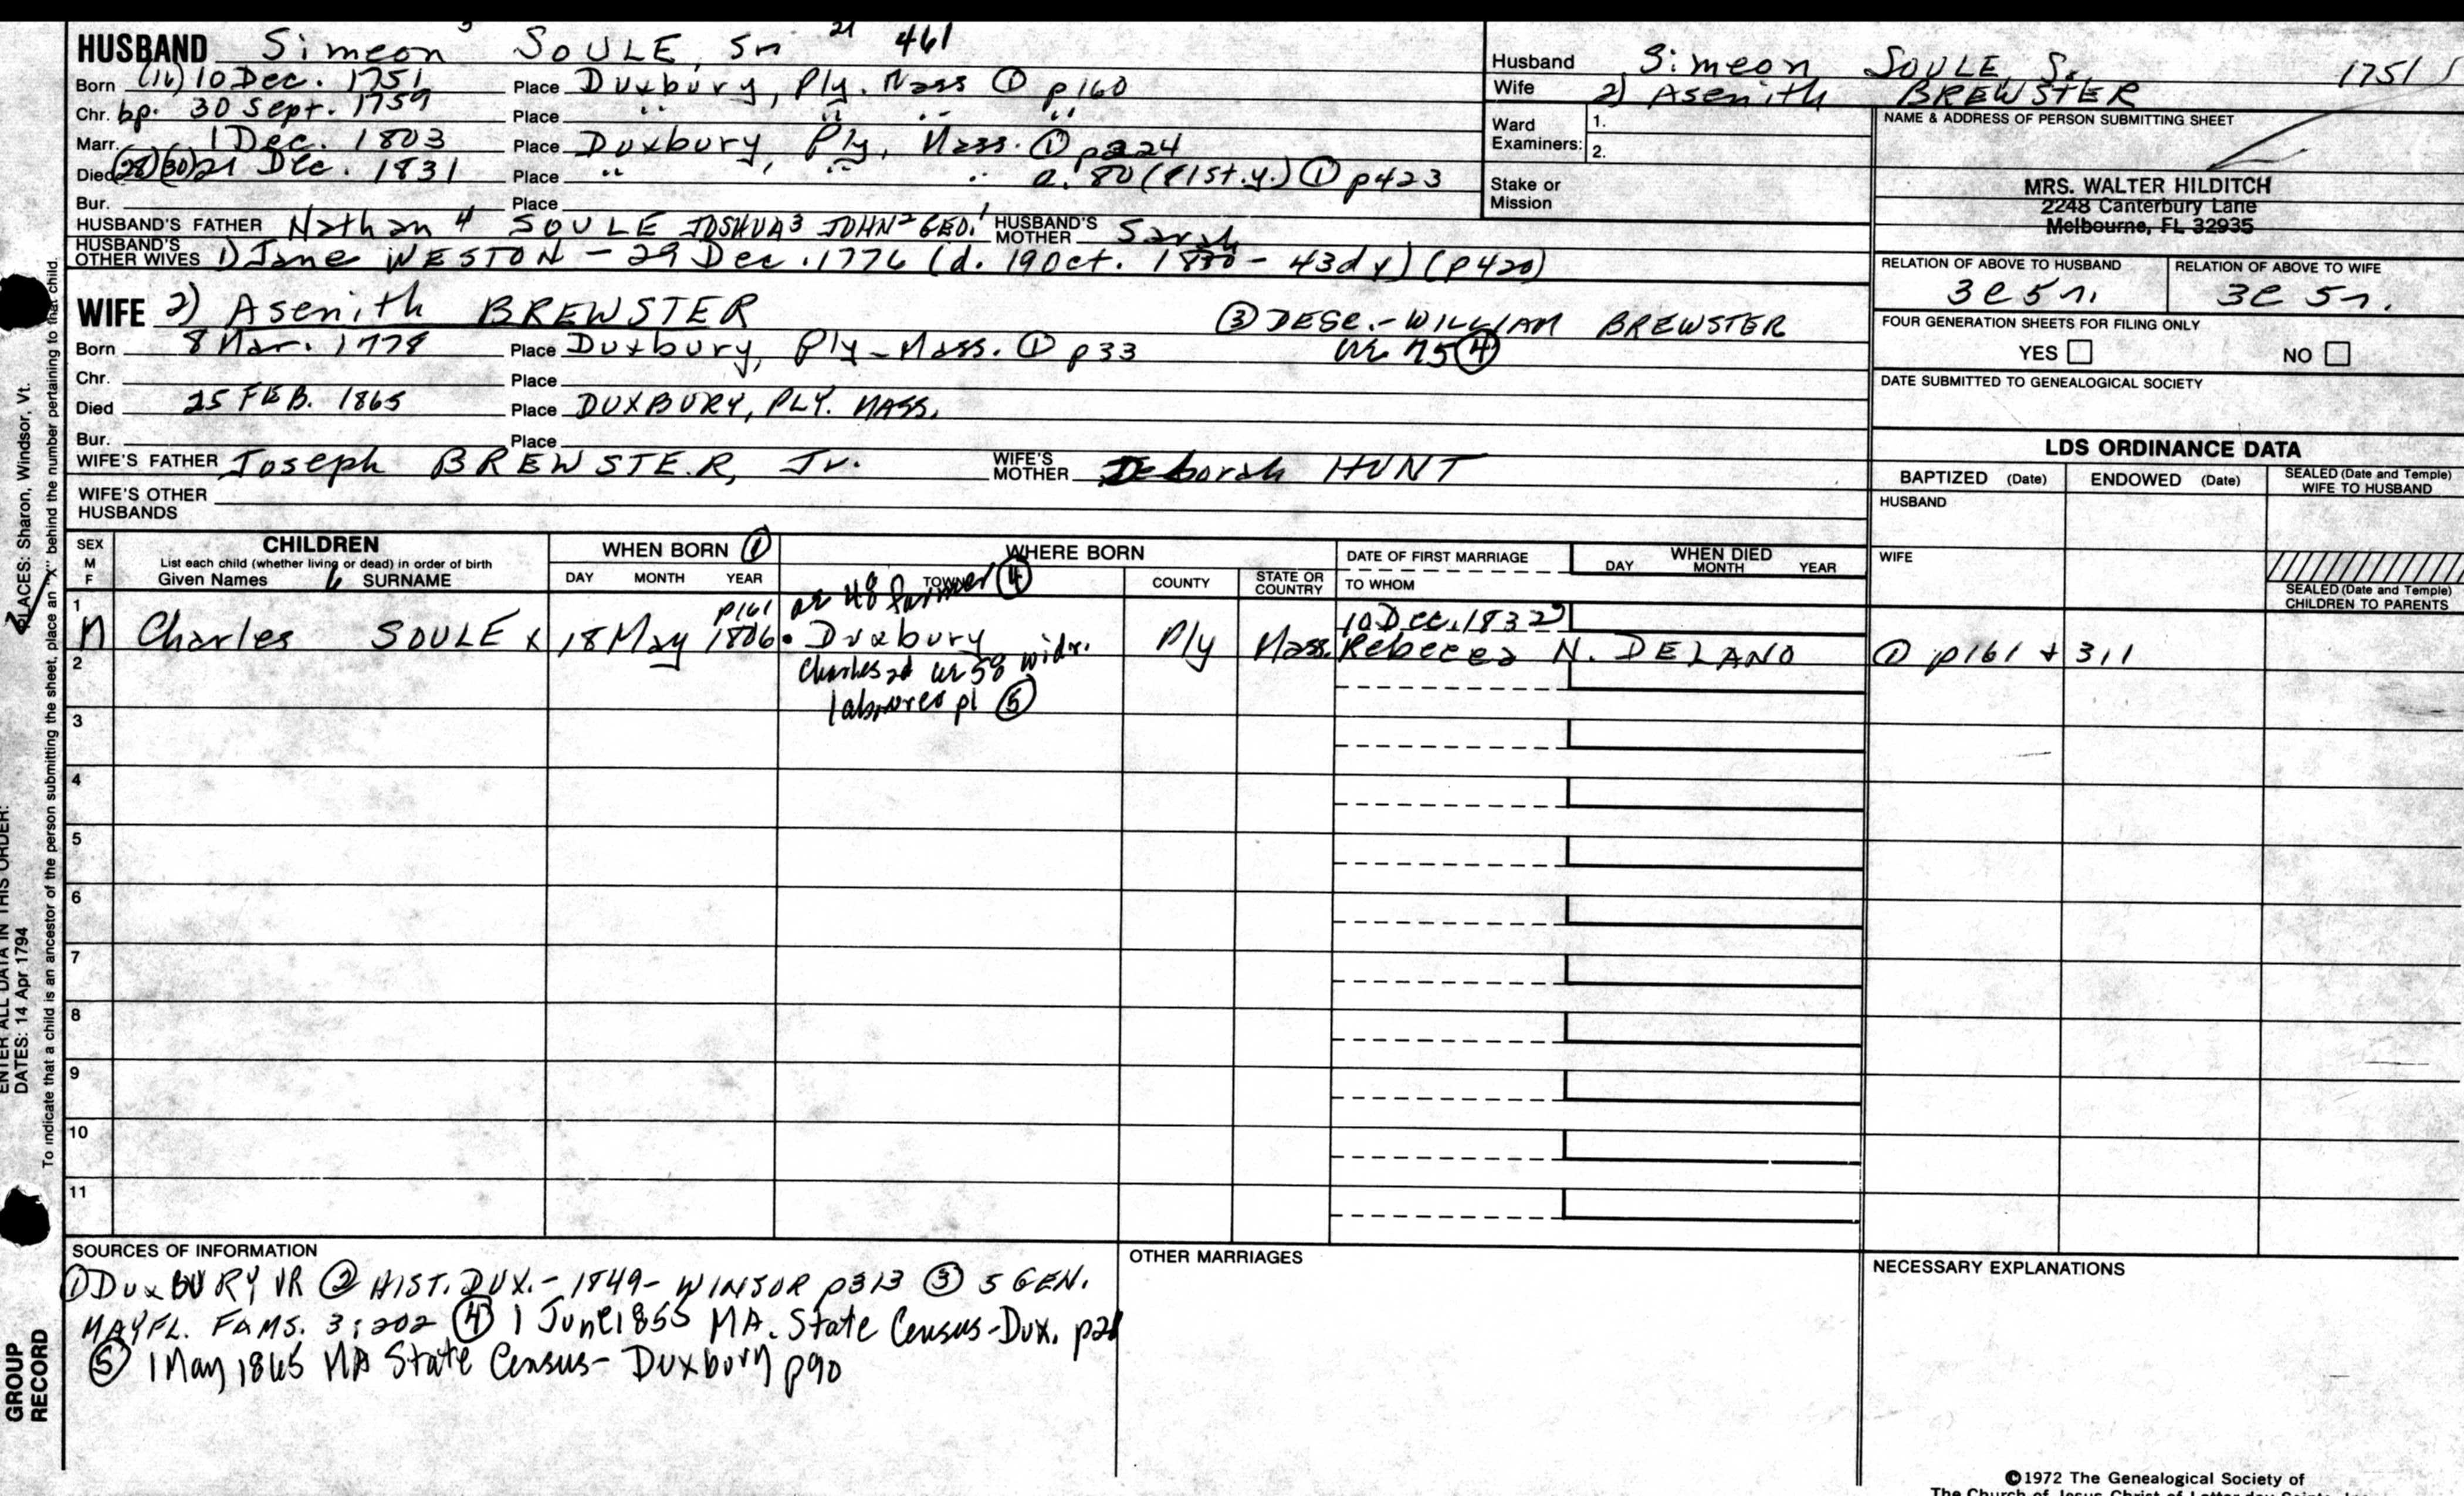 HUSBAND Simeon 5 SOULE, Sr 21 461
Born (16) 10 Dec. 1751 Place Duxbury, Ply. Mass ① p160
Chr. bp. 30 Sept. 1759 Place " " " "
Marr. 1 Dec. 1803 Place Duxbury, Ply, Mass. ① p324
Died (28)(30)21 Dec. 1831 Place " " " a. 80 (81st.y.) ① p423
Bur. Place
HUSBAND'S FATHER Nathan 4 SOULE JOSHUA3 JOHN2 GEO.1 HUSBAND'S MOTHER Sarah
HUSBAND'S OTHER WIVES 1) Jane WESTON - 29 Dec. 1776 (d. 19 Oct. - 43d y) (p420)
WIFE 2) Asenith BREWSTER ③ DESC.- WILLIAM BREWSTER
Born 8 Mar. 1778 Place Duxbury, Ply-Mass. ① p33 75 ④
Chr. Place
Died 25 FEB. 1865 Place DUXBURY, PLY. MASS.
Bur. Place
WIFE'S FATHER Joseph BREWSTER, Jr. WIFE'S MOTHER Deborah HUNT
WIFE'S OTHER HUSBANDS
Husband Simeon SOULE, Sr. 1751
Wife 2) Asenith BREWSTER
Ward Examiners: 1.
2.
Stake or Mission
NAME & ADDRESS OF PERSON SUBMITTING SHEET
MRS. WALTER HILDITCH
2248 Canterbury Lane
Melbourne, FL 32935
RELATION OF ABOVE TO HUSBAND RELATION OF ABOVE TO WIFE
FOUR GENERATION SHEETS FOR FILING ONLY
YES NO
DATE SUBMITTED TO GENEALOGICAL SOCIETY
LDS ORDINANCE DATA
BAPTIZED (Date) ENDOWED (Date) SEALED (Date and Temple) WIFE TO HUSBAND
HUSBAND
WIFE
SEALED (Date and Temple)
CHILDREN TO PARENTS
SEX M F CHILDREN WHEN BORN ① WHERE BORN DATE OF FIRST MARRIAGE WHEN DIED
List each child (whether living or dead) in order of birth
Given Names 6 SURNAME DAY MONTH YEAR TOWN COUNTY STATE OR COUNTRY TO WHOM DAY MONTH YEAR
p161 48 farmer ④
1 M Charles SOULE x 18 May 1806 Duxbury Ply Mass. 10 Dec. 1832
Rebecca N. DELANO ① p161 + 311
2 Charles 2d 58 widr.
⑤
3
4
5
6
7
8
9
10
11
SOURCES OF INFORMATION OTHER MARRIAGES NECESSARY EXPLANATIONS
① DUXBURY VR ② HIST. DUX.- 1849- WINSOR p313 ③ 5 GEN.
MAYFL. FAMS. 3:202 ④ 1 June 1855 MA. State Census-Dux.
⑤ 1 May 1865 MA State Census- Duxbury p90
©1972 The Genealogical Society of
The Church of Jesus Christ of Latter-day Saints, Inc.
PLACES: Sharon, Windsor, Vt.
ENTER ALL DATA IN THIS ORDER:
DATES: 14 Apr 1794
To indicate that a child is an ancestor of the person submitting the sheet, place an "X" behind the number pertaining to that child.
GROUP
RECORD